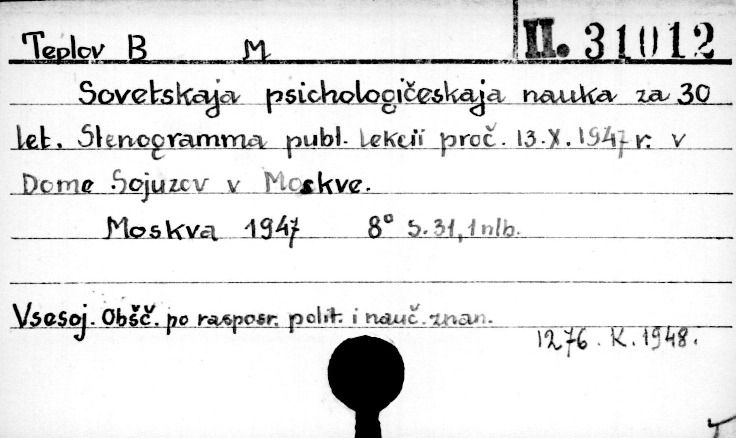 Teplov B M II. 31012
Sovetskaja psichologičeskaja nauka za 30
let. Stenogramma publ. lekcii proč. 13.X.1947 r. v
Dome Sojuzov v Moskve.
Moskva 1947 8° S. 31, 1 nlb.
Vsesoj. Obšč. po rasposr. polit. i nauč. znan.
1276. K. 1948.